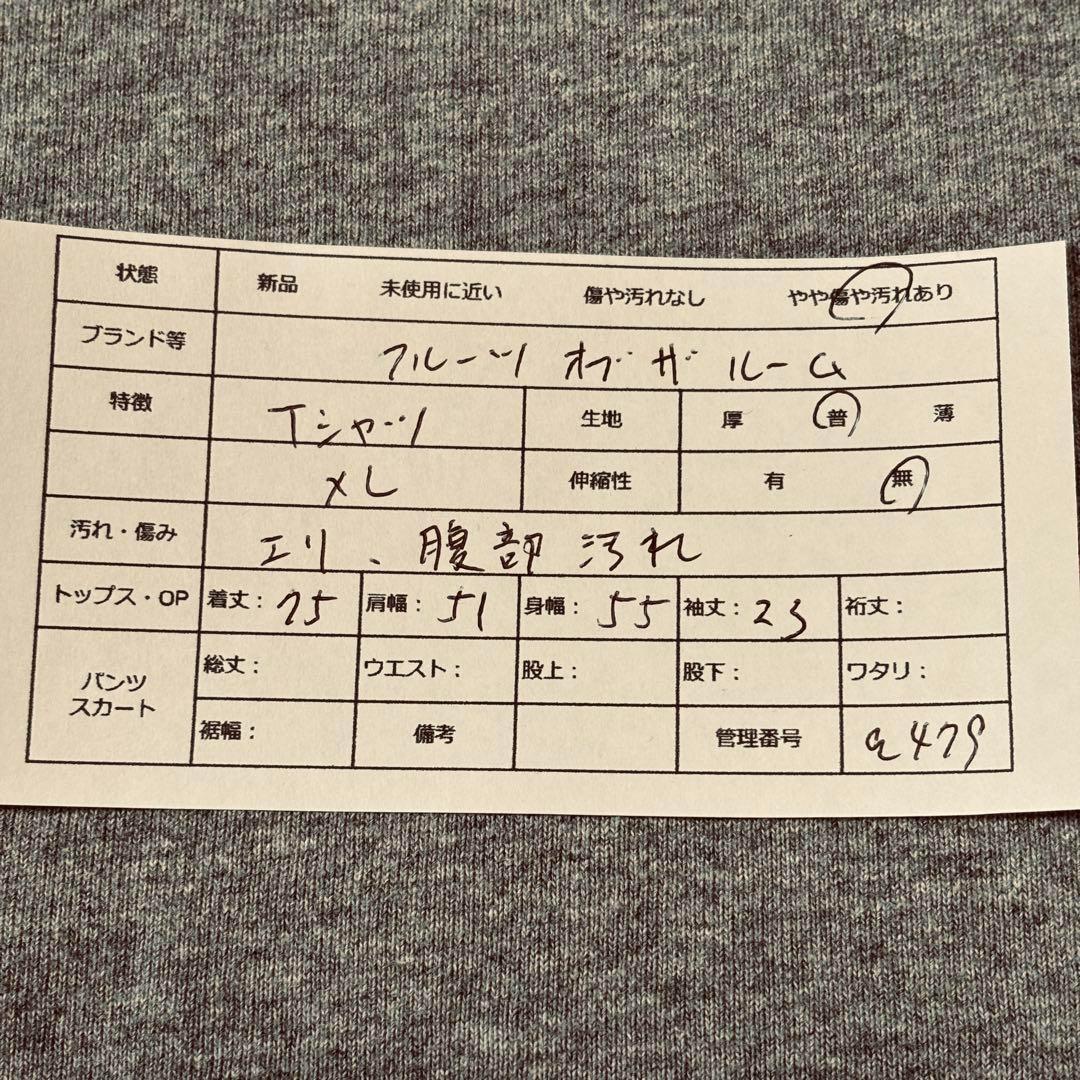 状態 新品 未使用に近い 傷や汚れなし やや傷や汚れあり
ブランド等 フルーツ オブ ザ ルーム
特徴 Tシャツ 生地 厚 普 薄
XL 伸縮性 有 無
汚れ・傷み エリ、腹部 汚れ
トップス・OP 着丈: 75 肩幅: 51 身幅: 55 袖丈: 23 裄丈:
パンツ スカート 総丈: ウエスト: 股上: 股下: ワタリ:
裾幅: 備考 管理番号